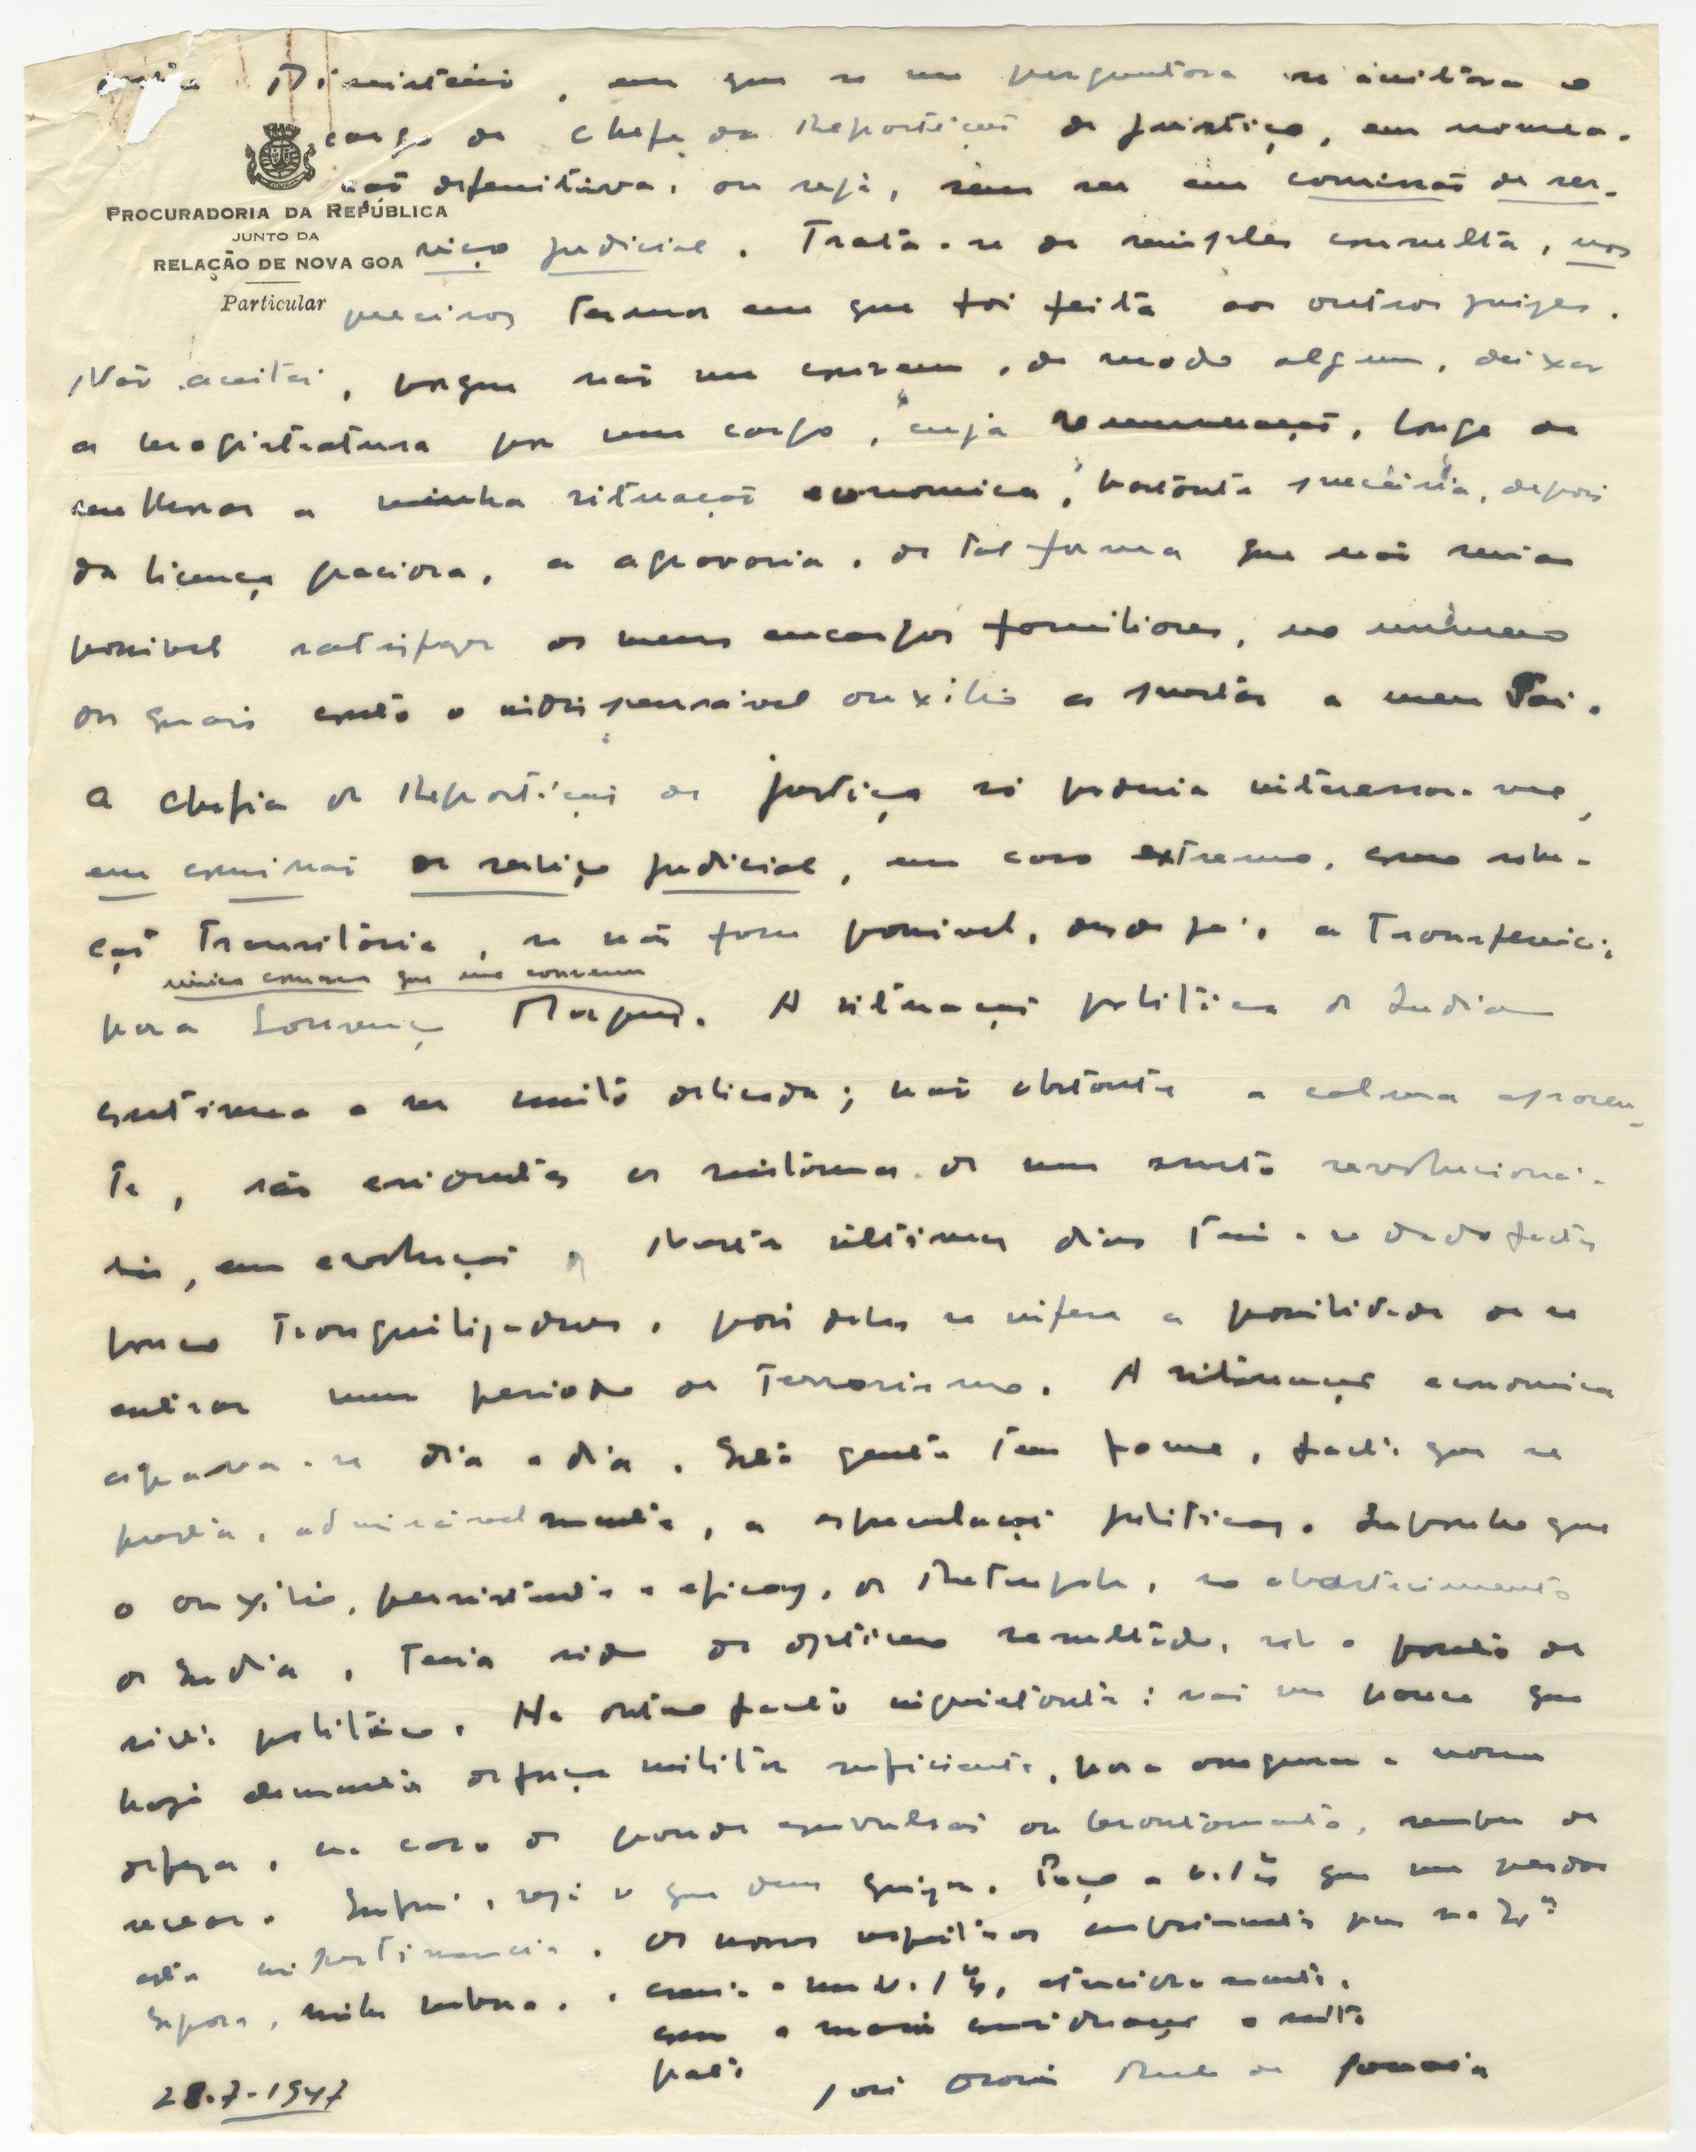 Ministério, em que se me perguntava se aceitava o
cargo de Chefe da Repartição de Justiça, em nomea-
ção defenitiva, ou seja, sem ser em comissão de ser-
PROCURADORIA DA REPÚBLICA
JUNTO DA
RELAÇÃO DE NOVA GOA
Particular
viço judicial. Trata-se de simples consulta, nos
precisos termos em que foi feita aos outros juizes.
Não aceitei, porque não me convem, de modo algum, deixar
a magistratura por um cargo, cuja remuneração, longe de
melhorar a minha situação economica, bastante precária, depois
da licença graciosa, a agravaria, de tal forma que não seria
possivel satisfazer os meus encargos familiares, no número
dos quais conto o indispensavel auxilio a prestar a meu Pai.
A Chefia da Repartição de Justiça só poderia interessar-me,
em comissão de serviço judicial, em caso extremo, como situa-
ção transitória, se não fosse possivel, desde já, a transferência
única comarca que me convem
para Lourenço Marques. A situação politica da India
continua a ser muito delicada; não obstante a calma aparen-
te, são evidentes os sintomas de um surto revolucioná-
rio, em evolução. Nestes últimos dias tem-se dado factos
pouco tranquilizadores, pois deles se infere a possibilidade de se
entrar num periodo de terrorismo. A situação economica
agrava-se dia a dia. Esta gente tem fome, facto que se
presta, admiravelmente, a especulações politicas. Suponho que
o auxilio, persistente e eficaz, da Metropole, no abastecimento
da India, teria sido de optimo resultado, sob o ponto de
vista politico. Ha outro facto inquietante: não me parece que
haja elementos de força militar suficiente, para assegurar a nossa
defeza, em caso de grande convulsão ou levantamento, sempre de
recear. Enfim, seja o que Deus quizer. Peço a V. Exª que me perdoe
esta impertinencia. Os nossos respeitosos cumprimentos para sua Exª
Esposa, minha senhora.
creia-me V. Exª, atenciosamente,
com a maior consideração e muito
grato
José
28-7-1947